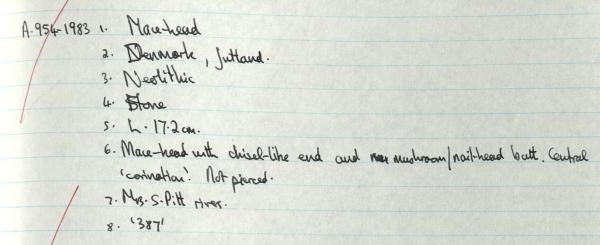 A.954-1983 1. Mace-head
2. Denmark, Jutland.
3. Neolithic
4. Stone
5. L. 17.2 cm.
6. Mace-head with chisel-like end and mushroom/nail-head butt. Central
'carination'. Not pierced.
7. Mrs. S. Pitt rivers.
8. '387'